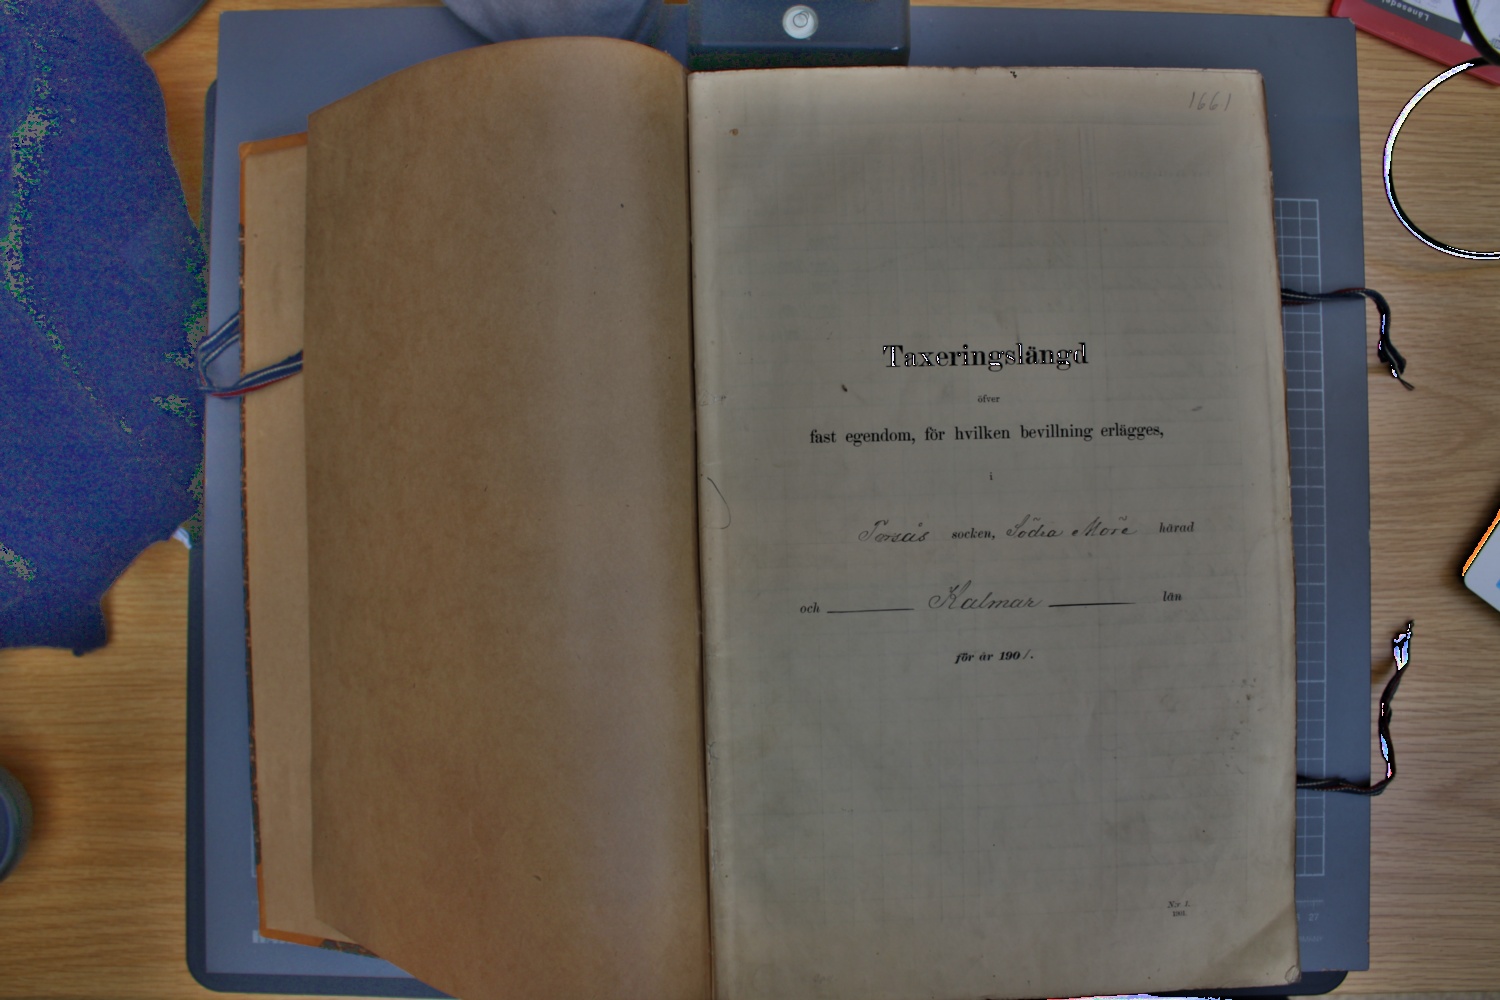 1661
Taxeringslängd
öfver
fast egendom, för hvilken bevillning erlägges,
i
Torsås socken, Södra Möre härad
och Kalmar län
för år 1901.
N:r 1.
1901.
27
Lånesedel